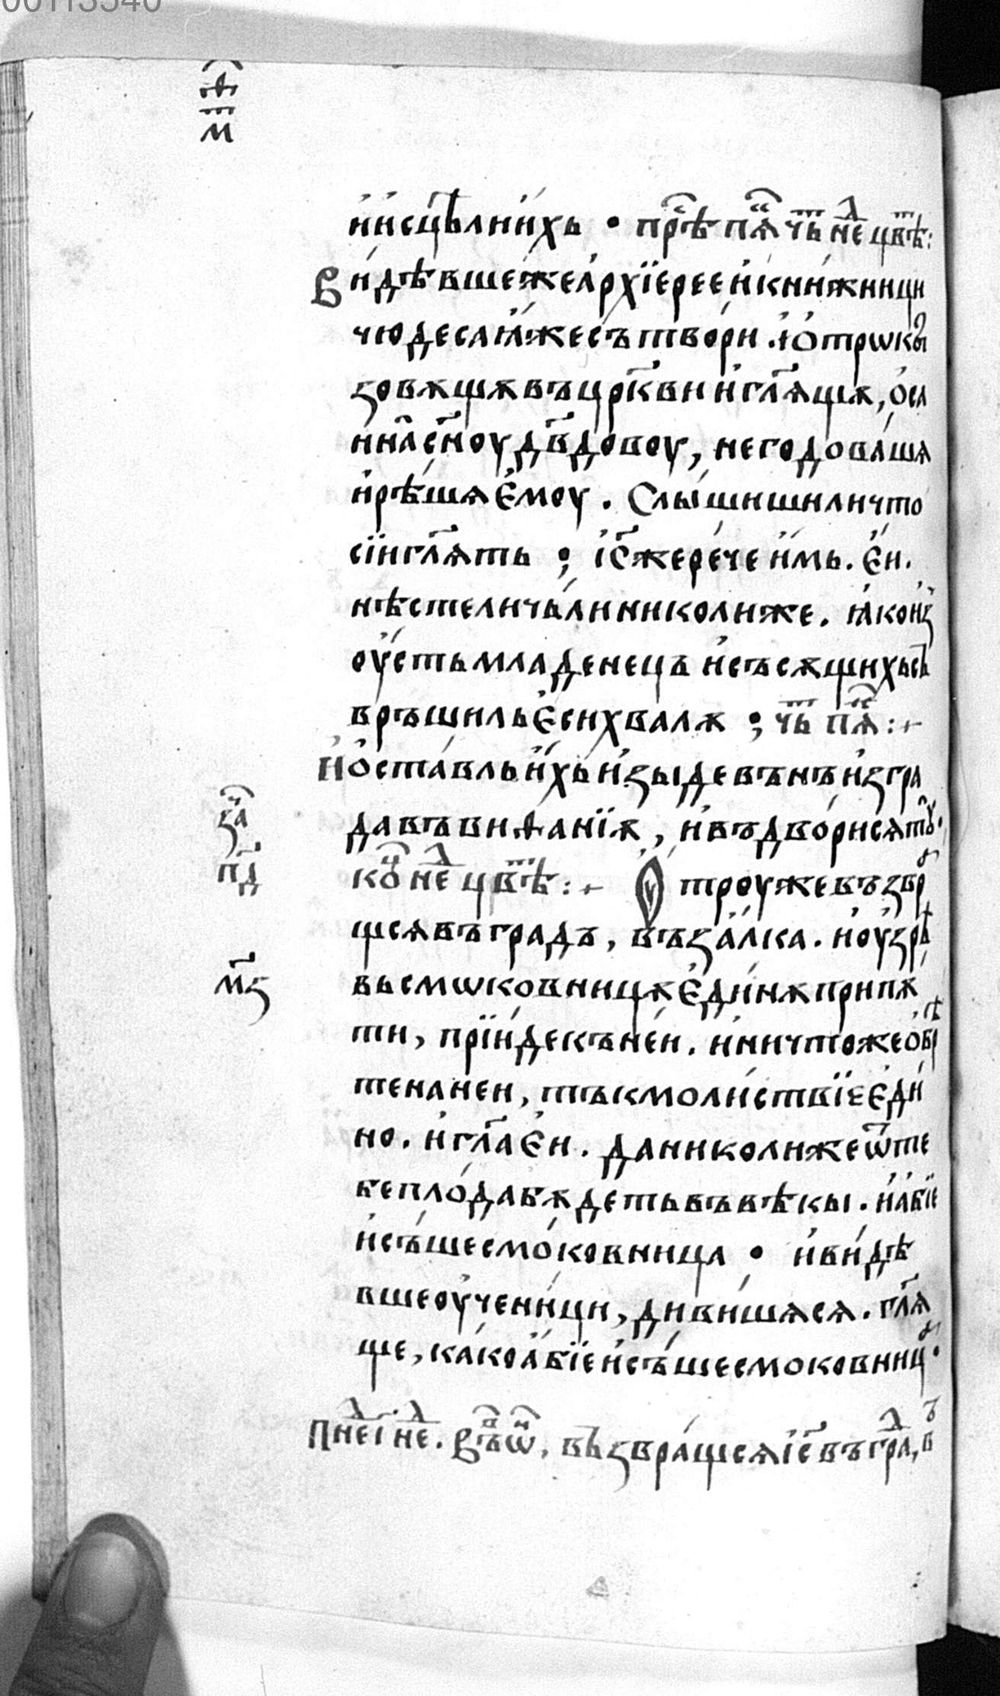 00113540
м
и҆ исцѣли и҆хь • прⷭ҇ѣ пѧⷦ҇ чьт неⷣ цвⷮѣ :
Видѣвше же а҆рхїерее и҆ книжници
чюдеса ꙗ҆же сътвори . и҆ ѻ҆трѡкы
зовѫщѫ въ црк҃ви и҆ гл҃ѧщѫ, ѻ҆са
нна сн҃оу дв҃довоу, негодовашѧ
и҆ рѣшѧ є҆моу . Слышиши ли что
сїи гл҃ѧть ; і҆с҃ же рече и҆мь . є҆и .
нѣсте ли чьли николиже . ꙗ҆ко из
оу҆сть младенець и҆ съсѫщихь съ
връшиль є҆си хвалѫ ; чьт пѧⷦ҇ :
И ѻ҆ставль и҆хь и҆зыде вънъ из гра
да въ виѳанїѫ, и҆ въдвори сѧ тоу .
за҃
пд҃
коⷩ҇ неⷣ цвⷮѣ : Оутроу же възвра
щсѧ въ градъ, възаалка . и҆ оу҆зрѣ
мѕ
вь смѡковницѫ є҆динѫ при пѫ
ти, прїиде къ неи . и҆ ничтоже ѻ҆брѣ
те на неи, тъкмо листвїе є҆ди
но . и҆ гл҃а є҆и . да николиже ѿ те
бе плода бѫдеть въ вѣкы . и҆ абїе
и҆съше смоковница • и҆ видѣ
вше оу҆ченици, дивишѧ сѧ . гл҃ѧ
ще, како абїе и҆съше смоковница .
възвращсѧ і҆с҃ въ граⷣ,